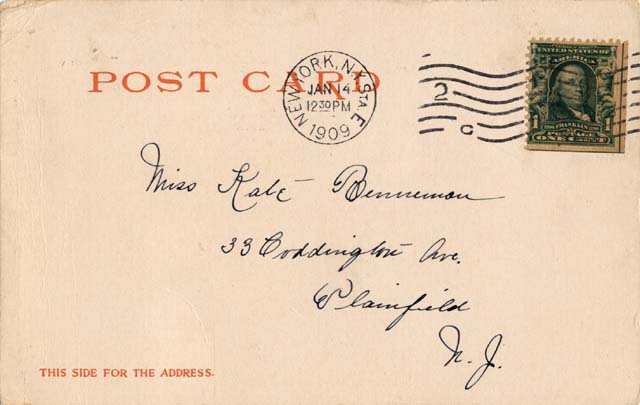 POST CARD
NEW YORK, N.Y. STA. E
JAN 14
12 30 PM
1909
2
C
UNITED STATES OF
AMERICA
FRANKLIN
1 POSTAGE 1
ONE CENT
Miss Kate Benneman
33 Coddington Ave.
Plainfield
N. J.
THIS SIDE FOR THE ADDRESS.